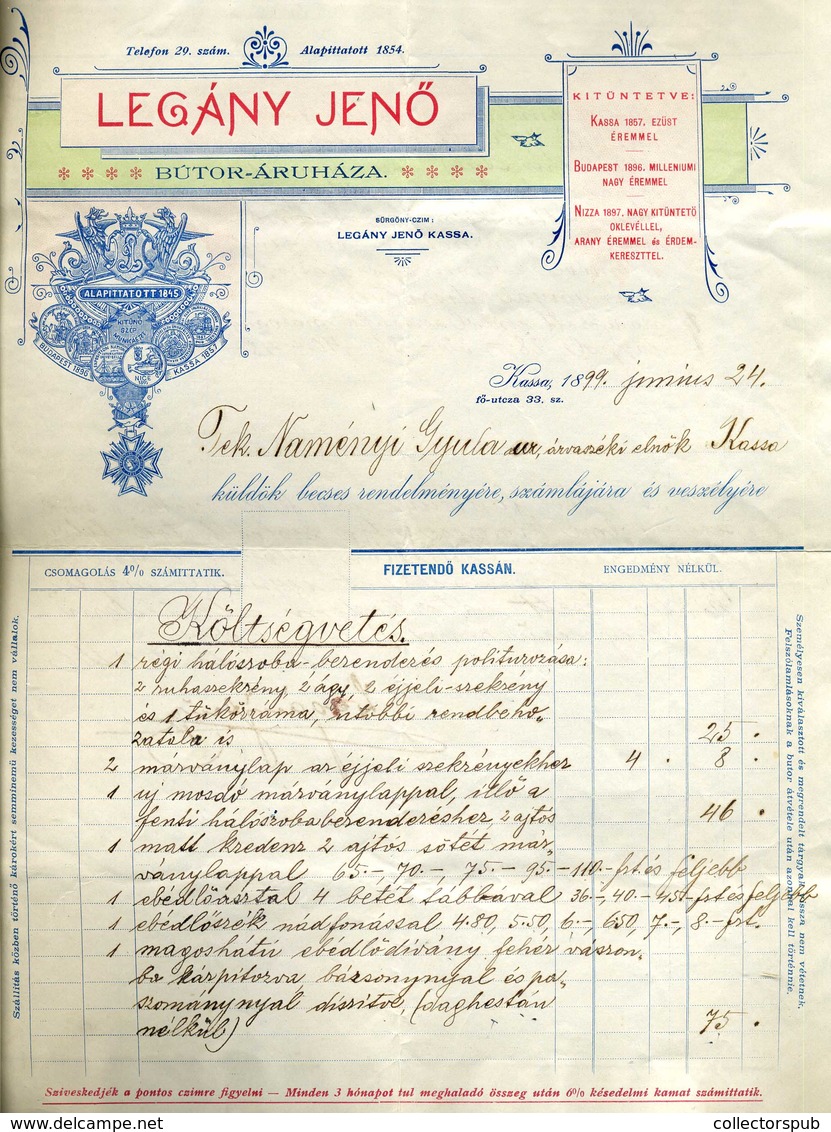 Telefon 29. szám. Alapittatott 1854.
LEGÁNY JENŐ
BÚTOR-ÁRUHÁZA.
KITÜNTETVE:
KASSA 1857. EZÜST
ÉREMMEL
BUDAPEST 1896. MILLENIUMI
NAGY ÉREMMEL
NIZZA 1897. NAGY KITÜNTETŐ
OKLEVÉLLEL,
ARANY ÉREMMEL és ÉRDEM-
KERESZTTEL.
SÜRGÖNY-CZIM:
LEGÁNY JENŐ KASSA.
ALAPITTATOTT 1845
KITÜNŐ
SZÉP
MUNKÁÉRT
BUDAPEST 1896
NICE
KASSA 1857
Kassa, 1899. junius 24.
fő-utcza 33. sz.
Tek. Naményi Gyula ur, árvaszéki elnök Kassa
küldök becses rendelményére, számlájára és veszélyére
CSOMAGOLÁS 4% SZÁMITTATIK. FIZETENDŐ KASSÁN. ENGEDMÉNY NÉLKÜL.
Költségvetés.
1 régi hálószoba-berendezés politurozása:
2 ruhaszekrény, 2 ágy, 2 éjjeli-szekrény
és 1 tükörráma, utóbbi rendbeho-
zatala is 25.
2 márványlap az éjjeli szekrényekhez 4. 8.
1 uj mosdó márványlappal, illő a
fenti hálószobaberendezéshez 2 ajtós 46.
1 matt kredenz 2 ajtos sötét már-
ványlappal 65.- 70.- 75.- 95.- 110.- frt és feljebb
1 ebédlőasztal 4 betét táblával 36.-, 40.- 45.- frt és feljebb
1 ebédlőszék nádfonással 4.80, 5.50, 6.-, 6.50, 7.-, 8.- frt.
1 magoshátú ebédlődívány fehér vászon-
ba kárpitozva, bársonynyal és pa-
szománynyal díszitve, (daghestan
nélkül) 75.
Szállitás közben történő károkért semminemü kezességet nem vállalok.
Személyesen kiválasztott és megrendelt tárgyak vissza nem vétetnek.
Felszólamlásoknak a butor átvétele után azonnal kell történnie.
Sziveskedjék a pontos czimre figyelni — Minden 3 hónapot tul meghaladó összeg után 6% késedelmi kamat számittatik.
collectorspub